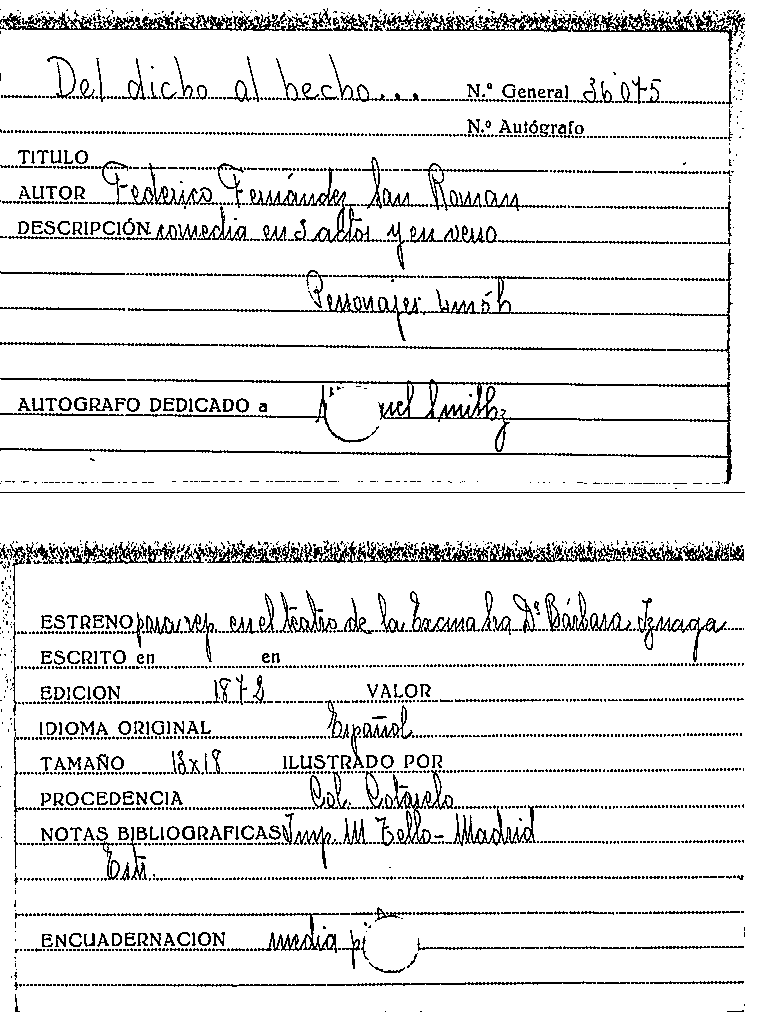 Del dicho al hecho... N.º General 36075
N.º Autógrafo
TITULO
AUTOR Federico Fernández San Roman
DESCRIPCIÓN comedia en 3 actos y en verso
Personajes
AUTOGRAFO DEDICADO a uel Smithz
ESTRENO para rep. en el teatro de la Excma Dª Bárbara Iznaga
ESCRITO en en
EDICION 1872 VALOR
IDIOMA ORIGINAL Español
TAMAÑO 13x18 ILUSTRADO POR
PROCEDENCIA Col. Cotarelo
NOTAS BIBLIOGRAFICAS Imp. M Tello - Madrid
ENCUADERNACION media